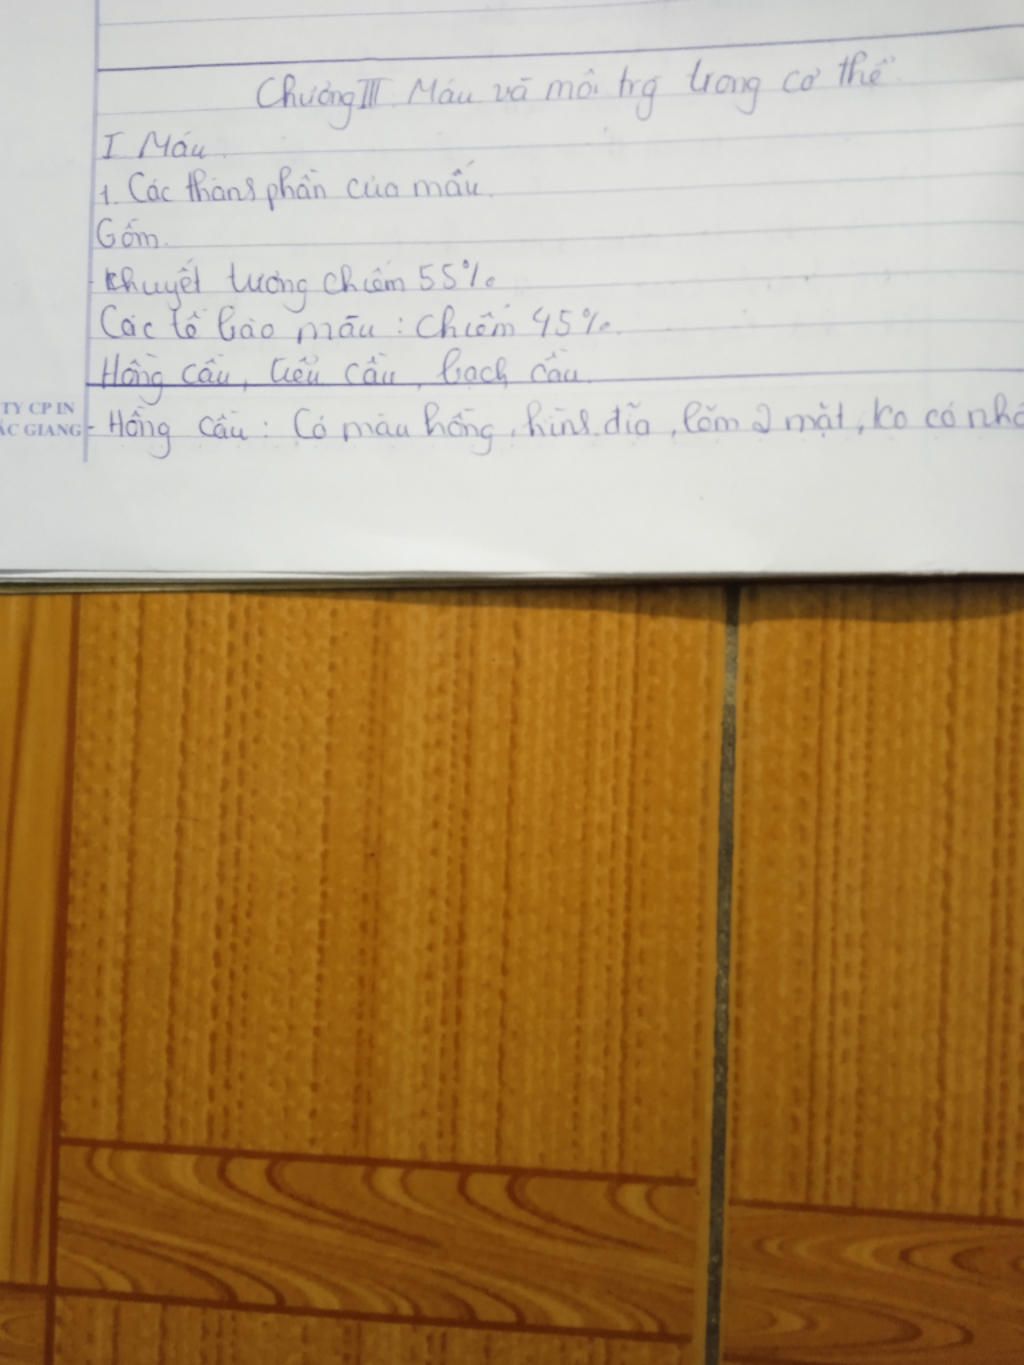 Chương III Máu và môi trg trong cơ thể
I Máu
1. Các thành phần của máu.
Gồm.
- Khuyết tương chiếm 55%
Các tế bào máu : Chiếm 45%.
Hồng cầu, tiểu cầu, bạch cầu
TY CP IN
ẮC GIANG
- Hồng cầu : Có màu hồng, hình đĩa, lõm 2 mặt, ko có nhâ